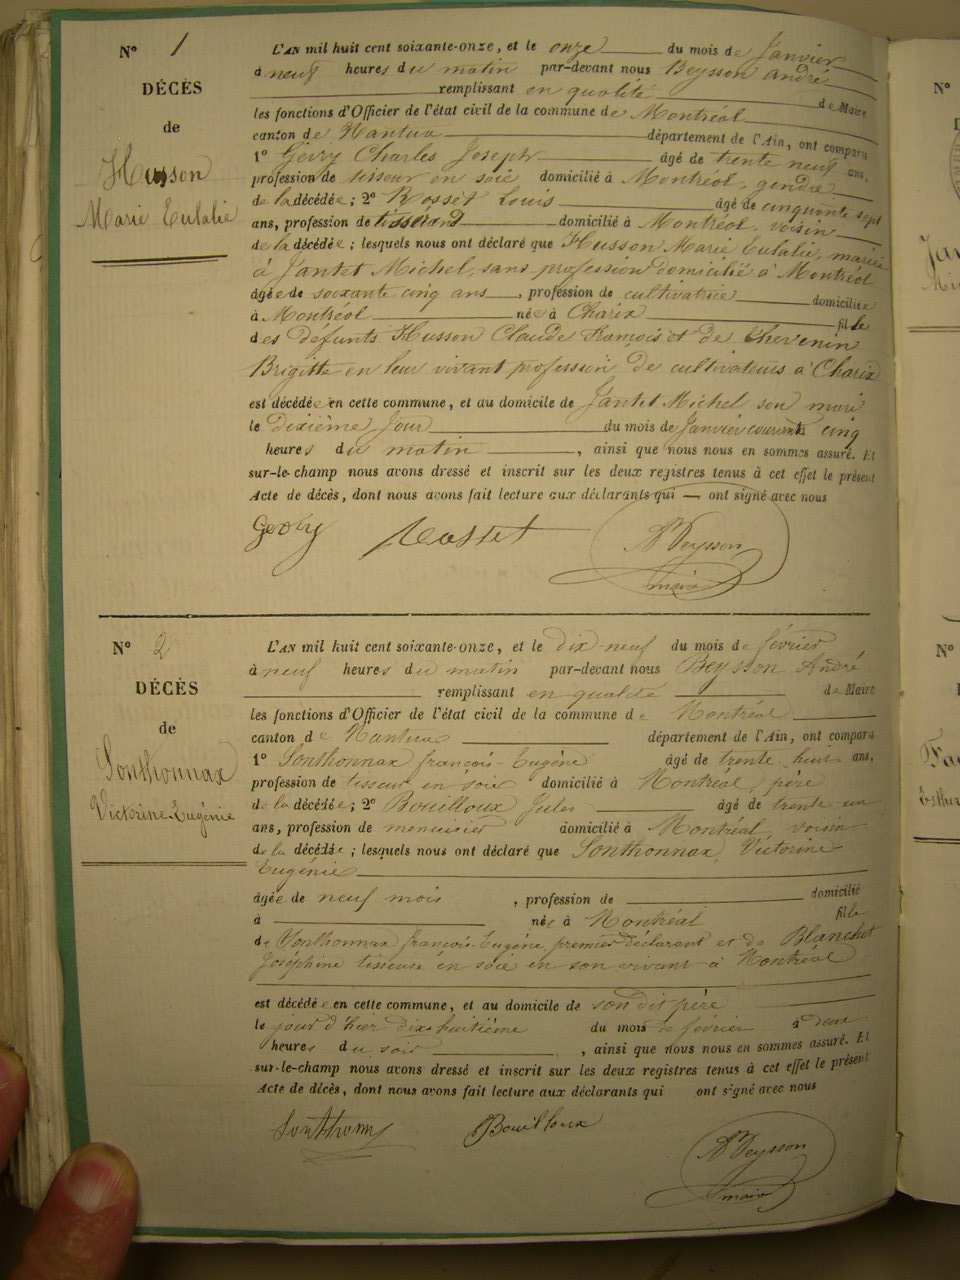 N° 1
DÉCÈS
de
Husson
Marie Eulalie
L'AN mil huit cent soixante-onze, et le onze du mois de Janvier
à neuf heures du matin par-devant nous Beysson André
remplissant en qualité de Maire
les fonctions d'Officier de l'état civil de la commune de Montréal
canton de Nantua département de l'Ain, ont comparu
1° Gévry Charles Joseph âgé de trente neuf ans,
profession de tisseur en soie domicilié à Montréal, gendre
de la décédée; 2° Rosset Louis âgé de cinquante sept
ans, profession de tisserand domicilié à Montréal, voisin
de la décédée; lesquels nous ont déclaré que Husson Marie Eulalie, mariée
à Jantet Michel, sans profession domicilié à Montréal
âgée de soixante cinq ans, profession de cultivatrice domiciliée
à Montréal née à Charix fille
des défunts Husson Claude François et de Chevenin
Brigitte en leur vivant profession de cultivateurs à Charix
est décédée en cette commune, et au domicile de Jantet Michel son mari
le dixième jour du mois de Janvier courant cinq
heures du matin, ainsi que nous nous en sommes assuré. Et
sur-le-champ nous avons dressé et inscrit sur les deux registres tenus à cet effet le présent
Acte de décès, dont nous avons fait lecture aux déclarants qui — ont signé avec nous
Rosset Beysson
maire
N° 2
DÉCÈS
de
Sonthonnax
Victorine Eugénie
L'AN mil huit cent soixante-onze, et le dix-neuf du mois de février
à neuf heures du matin par-devant nous Beysson André
remplissant en qualité de Maire
les fonctions d'Officier de l'état civil de la commune de Montréal
canton de Nantua département de l'Ain, ont comparu
1° Sonthonnax françois-Eugène âgé de trente huit ans,
profession de tisseur en soie domicilié à Montréal, père
de la décédée; 2° Bouilloux Jules âgé de trente un
ans, profession de menuisier domicilié à Montréal, voisin
de la décédée; lesquels nous ont déclaré que Sonthonnax, Victorine
Eugénie
âgée de neuf mois, profession de domicilié
à née à Montréal fille
de Sonthonnax françois-Eugène premier déclarant et de Blanchet
Joséphine tisseuse en soie en son vivant à Montréal
est décédée en cette commune, et au domicile de son dit père
le jour d'hier dix-huitième du mois de février à deux
heures du soir, ainsi que nous nous en sommes assuré. Et
sur-le-champ nous avons dressé et inscrit sur les deux registres tenus à cet effet le présent
Acte de décès, dont nous avons fait lecture aux déclarants qui ont signé avec nous
Bouilloux Beysson
maire